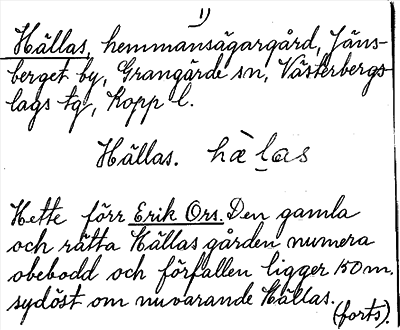 1)
Hällas, hemmansägargård, Jäns-
berget by, Grangärde sn, Västerbergs-
lags tg, Kopp l.
Hällas. hàḷas
Hette förr Erik Ors. Den gamla
och rätta Hällas gården numera
obebodd och förfallen ligger 150 m.
sydöst om nuvarande Hällas.
(forts).